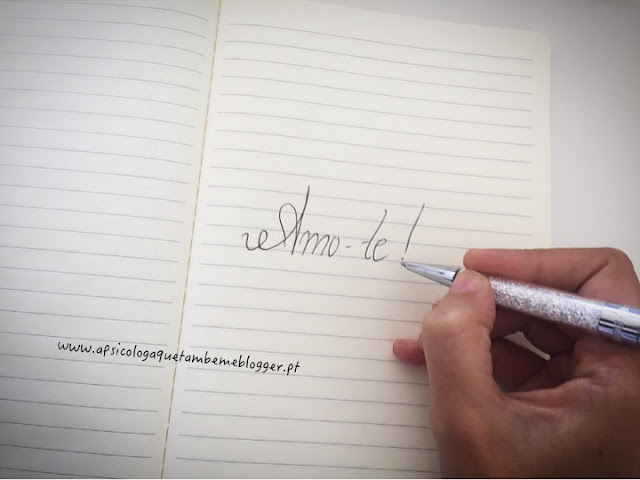 Amo-te!
www.apsicologaquetambemeblogger.pt